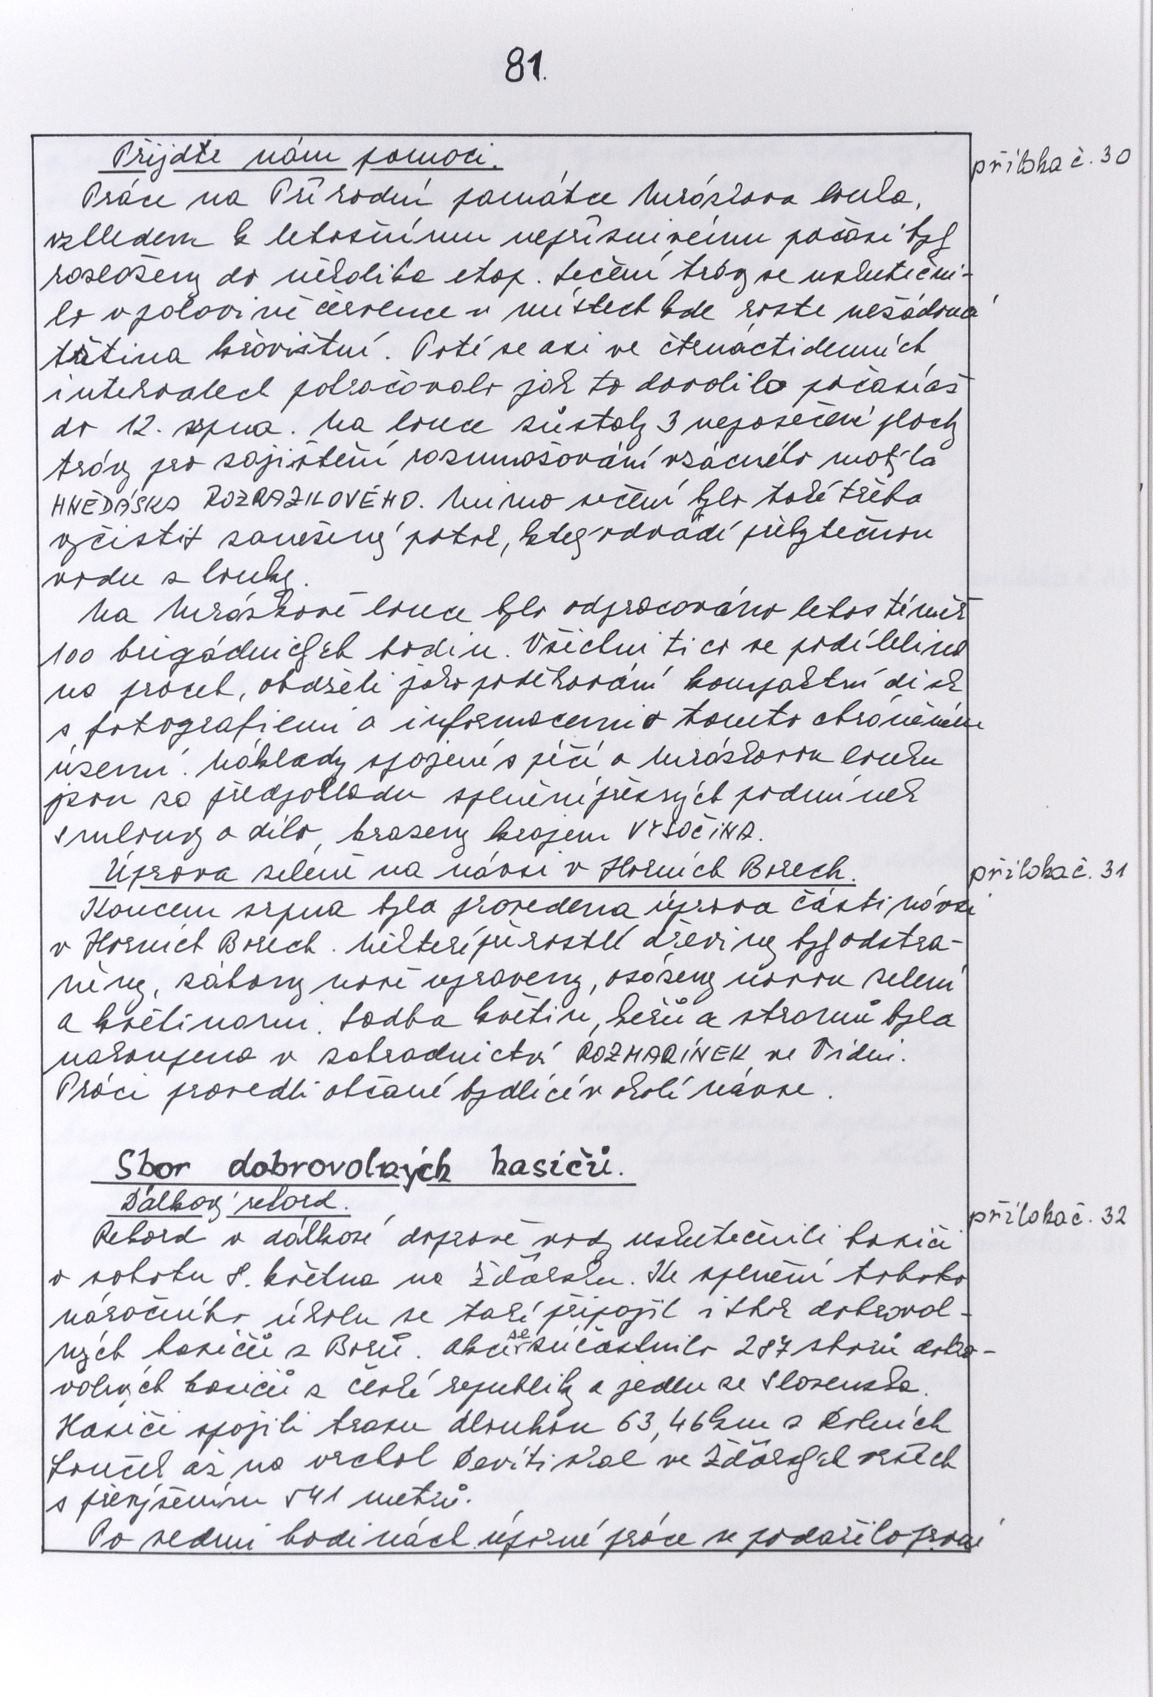 81.
Přijďte nám pomoci.
příloha č. 30
Práce na Přírodní památce Mrázkova louka,
vzhledem k letošnímu nepříznivému počasí byly
rozloženy do několika etap. Sečení trávy se uskuteční-
lo v polovině července v místech kde roste nežádoucí
třtina křovištní. Poté se asi ve čtrnáctidenních
intervalech pokračovalo jak to dovolilo počasí až
do 12. srpna. Na louce zůstaly 3 neposečené plochy
trávy pro zajištění rozmnožování vzácného motýla
HNĚDÁSKA ROZRAZILOVÉHO. Mimo sečení bylo také třeba
vyčistit zanešený potok, který odvádí přebytečnou
vodu z louky.
Na Mrázkově louce bylo odpracováno letos téměř
100 brigádnických hodin. Všichni ti co se podíleli
na pracech, obdrželi jako poděkování kompaktní disk
s fotografiemi a informacemi o tomto chráněném
území. Náklady spojené s péčí o Mrázkovu louku
jsou za předpokladu splnění přesných podmínek
smlouvy o dílo, hrazeny krajem VYSOČINA.
Úprava zeleně na návsi v Horních Borech.
příloha č. 31
Koncem srpna byla provedena úprava části návsi
v Horních Borech. Některé přerostlé dřeviny byly odstra-
něny, záhony nově upraveny, osázeny novou zelení
a květinami. Sadba květin, keřů a stromů byla
nakoupena v zahradnictví ROZMARÍNEK ve Vídni.
Práci provedli občané bydlící v okolí návse.
Sbor dobrovolných hasičů.
Dálkový rekord.
příloha č. 32
Rekord v dálkové dopravě vody uskutečnili hasiči
v sobotu 8. května na Žďársku. Ke splnění tohoto
náročného úkolu se také připojil i sbor dobrovol-
ných hasičů z Borů. Akce se zúčastnilo 287 sborů dobro-
volných hasičů z České republiky a jeden ze Slovenska.
Hasiči spojili trasu dlouhou 63,46 km z Dolních
Louček až na vrchol Devíti skal ve Žďárských vrších
s převýšením 541 metrů.
Po sedmi hodinách úporné práce se podařilo